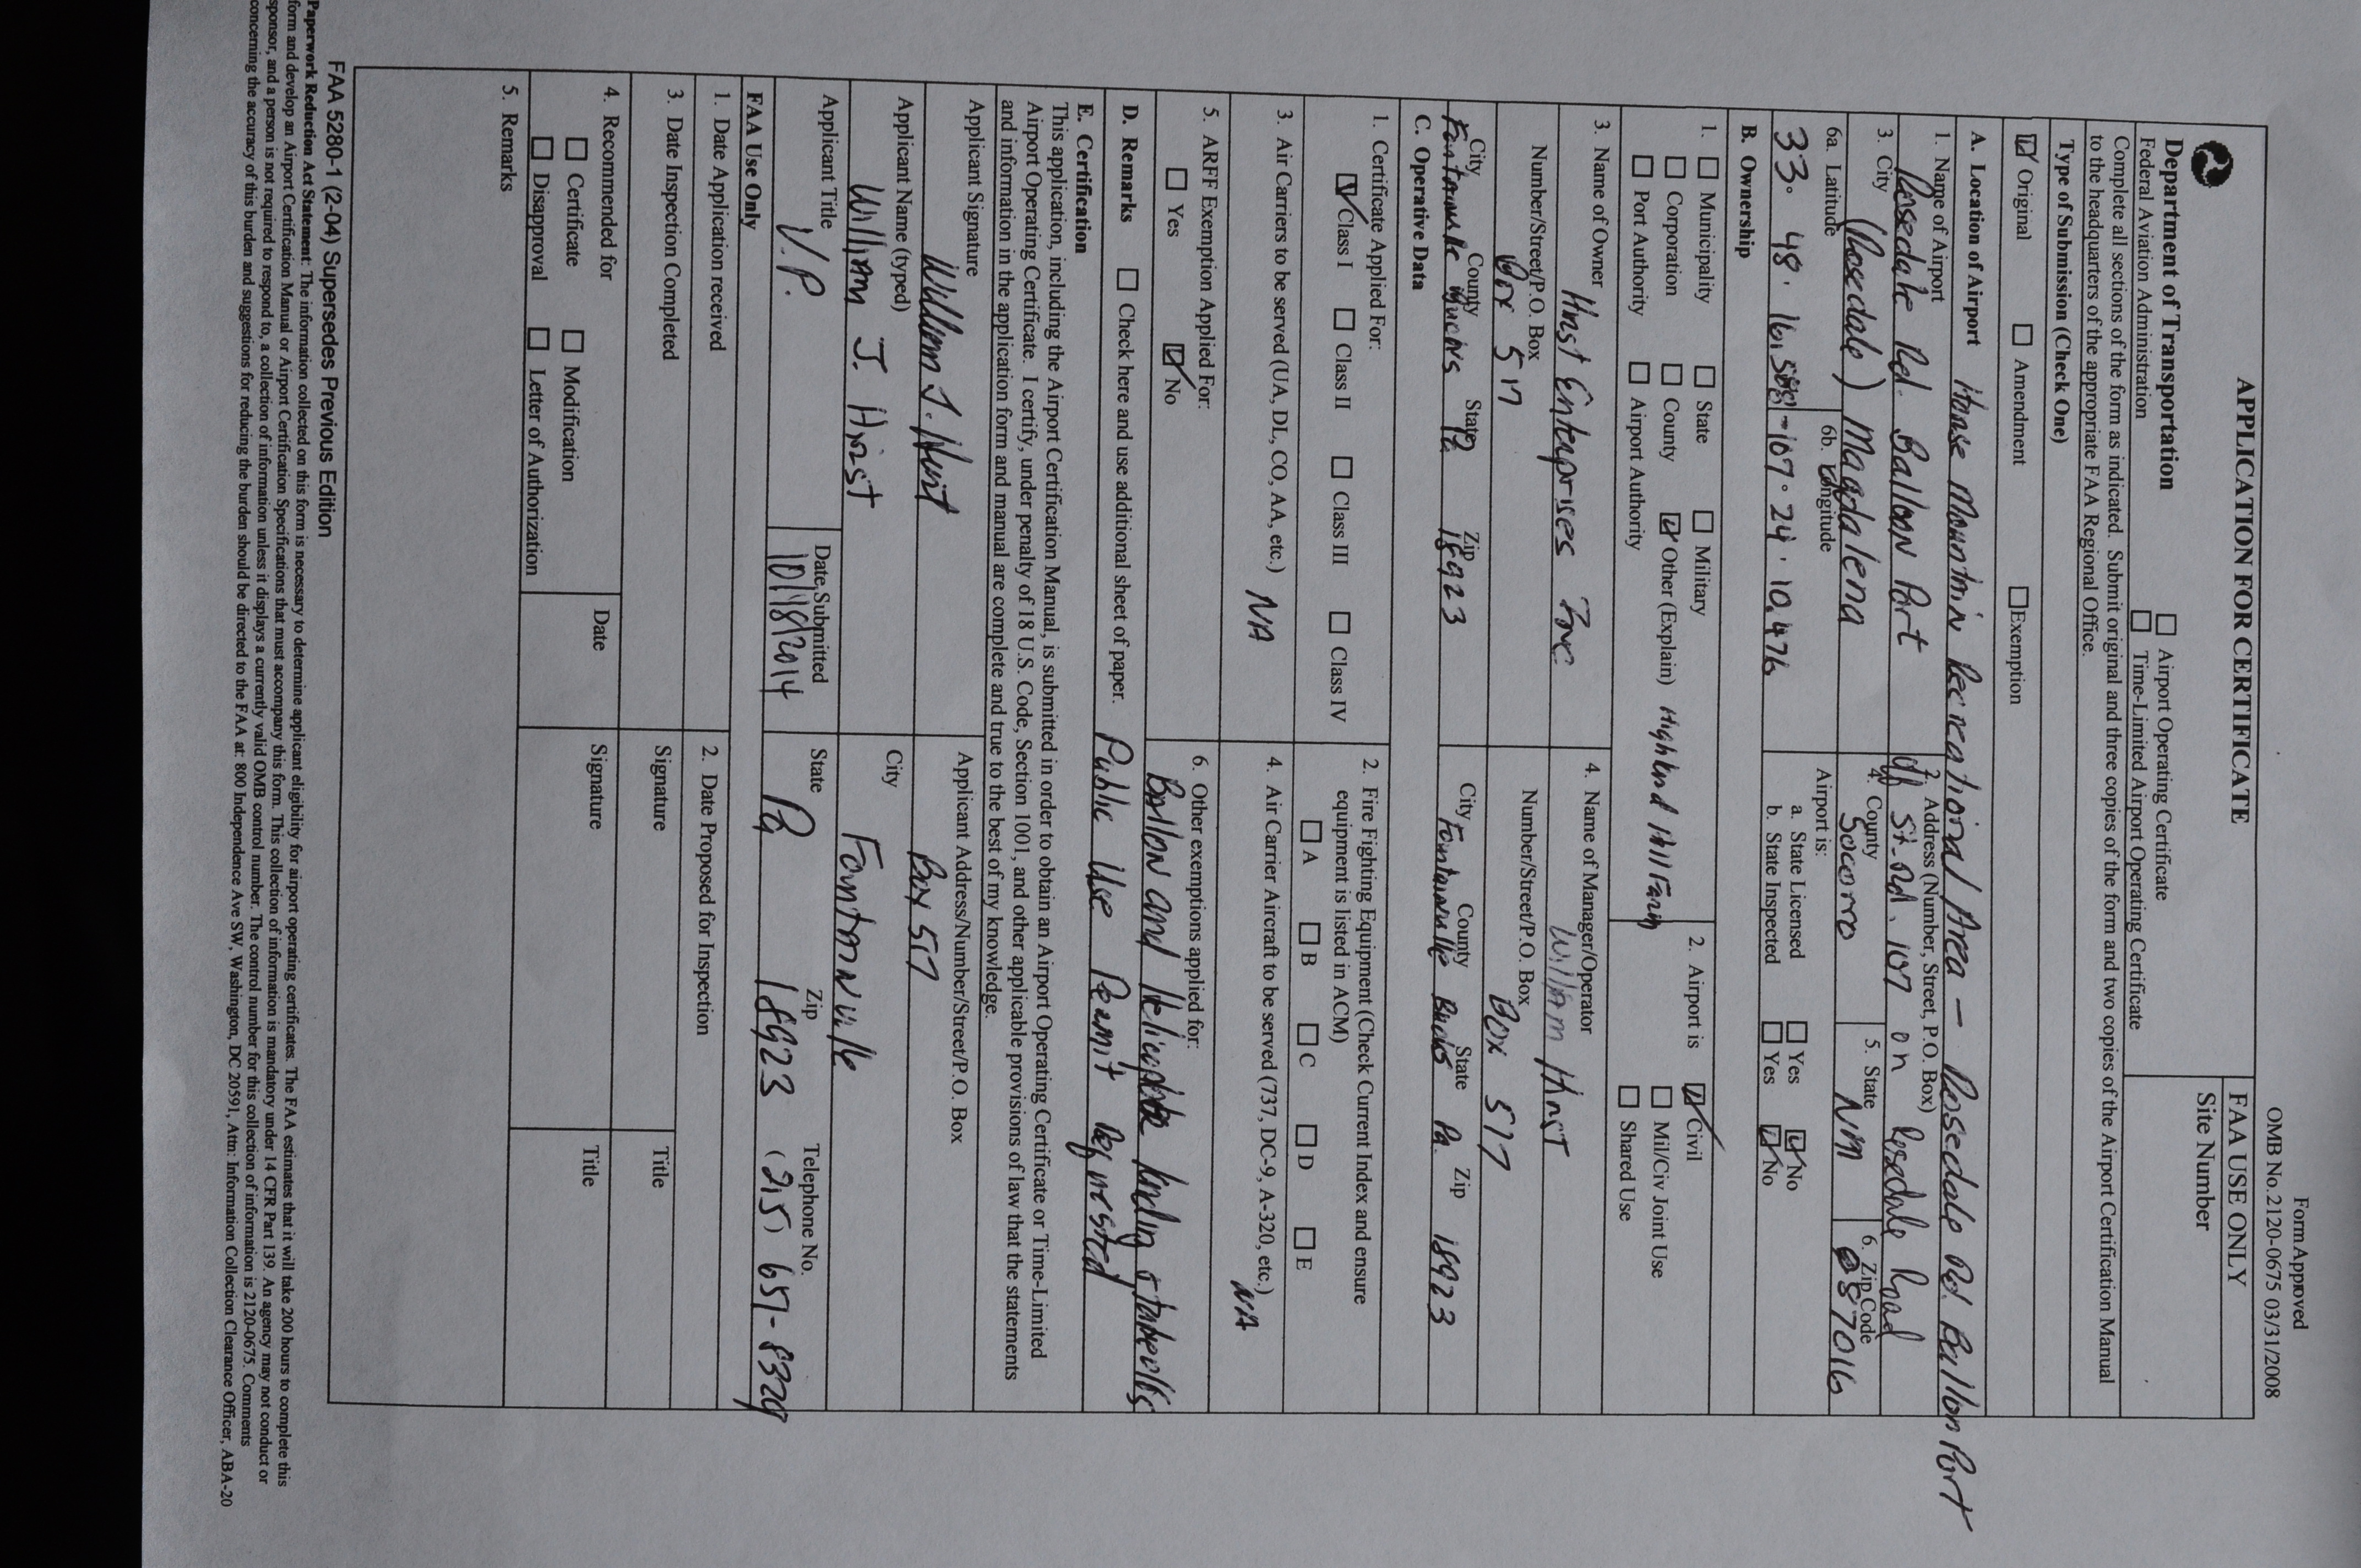 Form Approved
OMB No.2120-0675 03/31/2008
APPLICATION FOR CERTIFICATE
FAA USE ONLY
Site Number
Department of Transportation
Federal Aviation Administration
☐ Airport Operating Certificate
☐ Time-Limited Airport Operating Certificate
Complete all sections of the form as indicated. Submit original and three copies of the form and two copies of the Airport Certification Manual
to the headquarters of the appropriate FAA Regional Office.
Type of Submission (Check One)
☑ Original ☐ Amendment ☐ Exemption
A. Location of Airport Horse Mountain Recreational Area - Rosedale Rd. Balloon Port
1. Name of Airport
Rosedale Rd. Balloon Port
2. Address (Number, Street, P.O. Box)
Off St. Rd. 107 on Rosedale Road
3. City (Rosedale) Magdalena
4. County Socorro
5. State NM
6. Zip Code 87016
6a. Latitude
33. 48. 16.588
6b. Longitude
-107. 24. 10.476
Airport is:
a. State Licensed ☐ Yes ☑ No
b. State Inspected ☐ Yes ☑ No
B. Ownership
1. ☐ Municipality ☐ State ☐ Military
☐ Corporation ☐ County ☑ Other (Explain) Highland Hill Farm
☐ Port Authority ☐ Airport Authority
2. Airport is ☑ Civil
☐ Mil/Civ Joint Use
☐ Shared Use
3. Name of Owner
Hirst Enterprises Inc.
4. Name of Manager/Operator
William Hirst
Number/Street/P.O. Box
Box 517
Number/Street/P.O. Box
Box 517
City County State Zip
Fountainville Bucks Pa 18923
City Fountainville County Bucks State Pa. Zip 18923
C. Operative Data
1. Certificate Applied For:
☑ Class I ☐ Class II ☐ Class III ☐ Class IV
2. Fire Fighting Equipment (Check Current Index and ensure
equipment is listed in ACM)
☐ A ☐ B ☐ C ☐ D ☐ E
3. Air Carriers to be served (UA, DL, CO, AA, etc.) NA
4. Air Carrier Aircraft to be served (737, DC-9, A-320, etc.) NA
5. ARFF Exemption Applied For:
☐ Yes ☑ No
6. Other exemptions applied for:
Ballon and Helicopter landing & takeoffs
D. Remarks ☐ Check here and use additional sheet of paper. Public Use Permit Requested
E. Certification
This application, including the Airport Certification Manual, is submitted in order to obtain an Airport Operating Certificate or Time-Limited
Airport Operating Certificate. I certify, under penalty of 18 U.S. Code, Section 1001, and other applicable provisions of law that the statements
and information in the application form and manual are complete and true to the best of my knowledge.
Applicant Signature
William J. Hirst
Applicant Address/Number/Street/P.O. Box
Box 517
Applicant Name (typed)
William J. Hirst
City
Fountainville
Applicant Title
V.P.
Date Submitted
10/18/2014
State
Pa
Zip
18923
Telephone No.
(215) 651-8329
FAA Use Only
1. Date Application received
2. Date Proposed for Inspection
3. Date Inspection Completed
Signature
Title
4. Recommended for
☐ Certificate ☐ Modification
☐ Disapproval ☐ Letter of Authorization
Date
Signature
Title
5. Remarks
FAA 5280-1 (2-04) Supersedes Previous Edition
Paperwork Reduction Act Statement: The information collected on this form is necessary to determine applicant eligibility for airport operating certificates. The FAA estimates that it will take 200 hours to complete this
form and develop an Airport Certification Manual or Airport Certification Specifications that must accompany this form. This collection of information is mandatory under 14 CFR Part 139. An agency may not conduct or
sponsor, and a person is not required to respond to, a collection of information unless it displays a currently valid OMB control number. The control number for this collection of information is 2120-0675. Comments
concerning the accuracy of this burden and suggestions for reducing the burden should be directed to the FAA at: 800 Independence Ave SW, Washington, DC 20591, Attn: Information Collection Clearance Officer, ABA-20